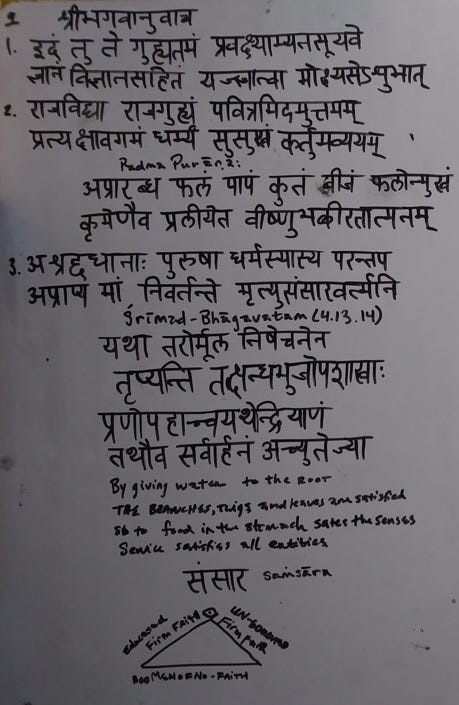 9 श्रीभगवानुवाच
1. इदं तु ते गुह्यतमं प्रवक्ष्याम्यनसूयवे
ज्ञानं विज्ञानसहितं यज्ज्ञात्वा मोक्ष्यसेऽशुभात्
2. राजविद्या राजगुह्यं पवित्रमिदमुत्तमम्
प्रत्यक्षावगमं धर्म्यं सुसुखं कर्तुमव्ययम्
Padma Purāṇa:
अप्रारब्ध फलं पापं कुतं बीजं फलोन्मुखं
कृमेणैव प्रलीयेत वीष्णुभक्तीरतात्मनम्
3. अश्रद्दधानाः पुरुषा धर्मस्यास्य परन्तप
अप्राप्य मां निवर्तन्ते मृत्युसंसारवर्त्मनि
Śrīmad-Bhāgavatam (4.13.14)
यथा तरोर्मूल निषेचनेन
तृप्यन्ति तत्स्कन्धभुजोपशाखाः
प्रणोपहाच्चयथेन्द्रियाणं
तथौव सर्वार्हनं अच्युतेज्या
By giving water to the ROOT
THE BRANCHES, Twigs and leaves are satisfied
So to food in the stomach sates the senses
Service satisfies all entities
संसार saṁsāra
Educated Firm Faith
Firm Faith
NO-FAITH